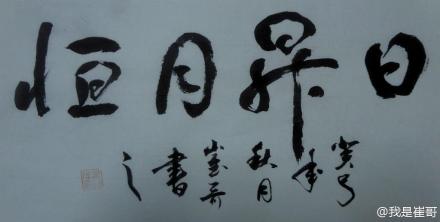 日昇月恒
癸巳年
秋月
崔
書
之
@我是崔哥